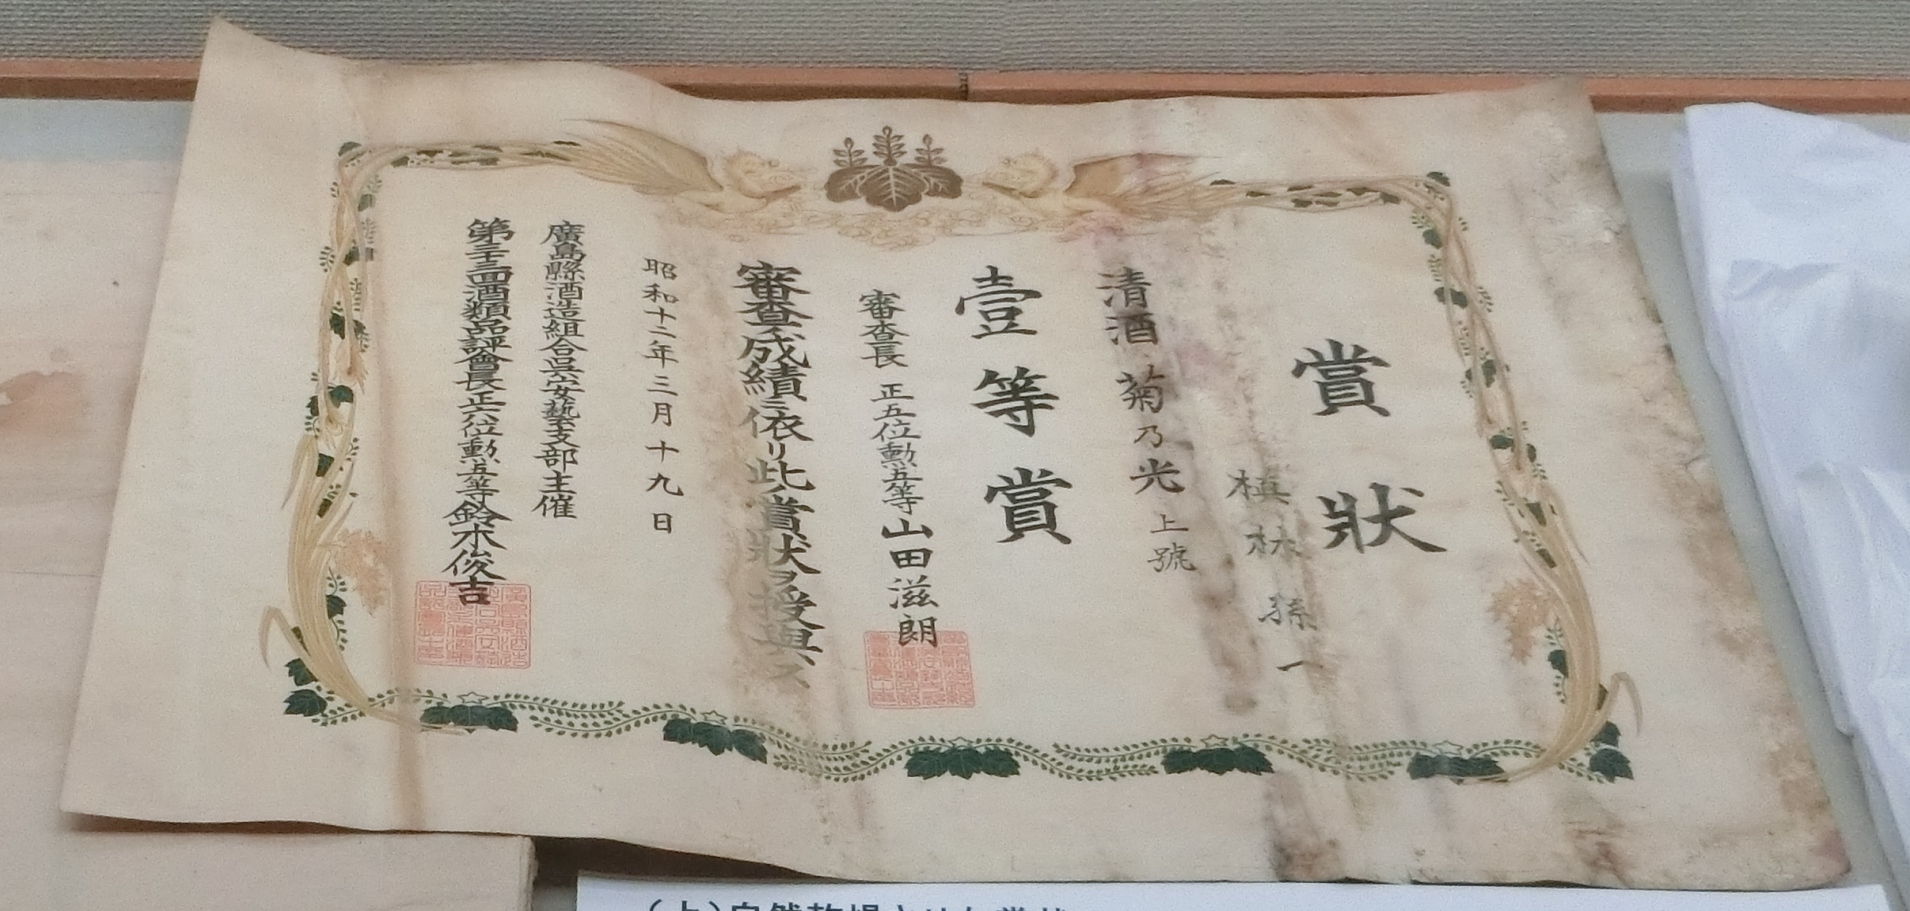 賞狀
槙林孫一
清酒 菊乃光 上號
壹等賞
審査長 正五位勲五等 山田滋朗
審査ノ成績ニ依リ此ノ賞狀ヲ授與ス
昭和十二年三月十九日
廣島縣酒造組合呉安藝支部主催
酒類品評會長正六位勲五等鈴木俊吉